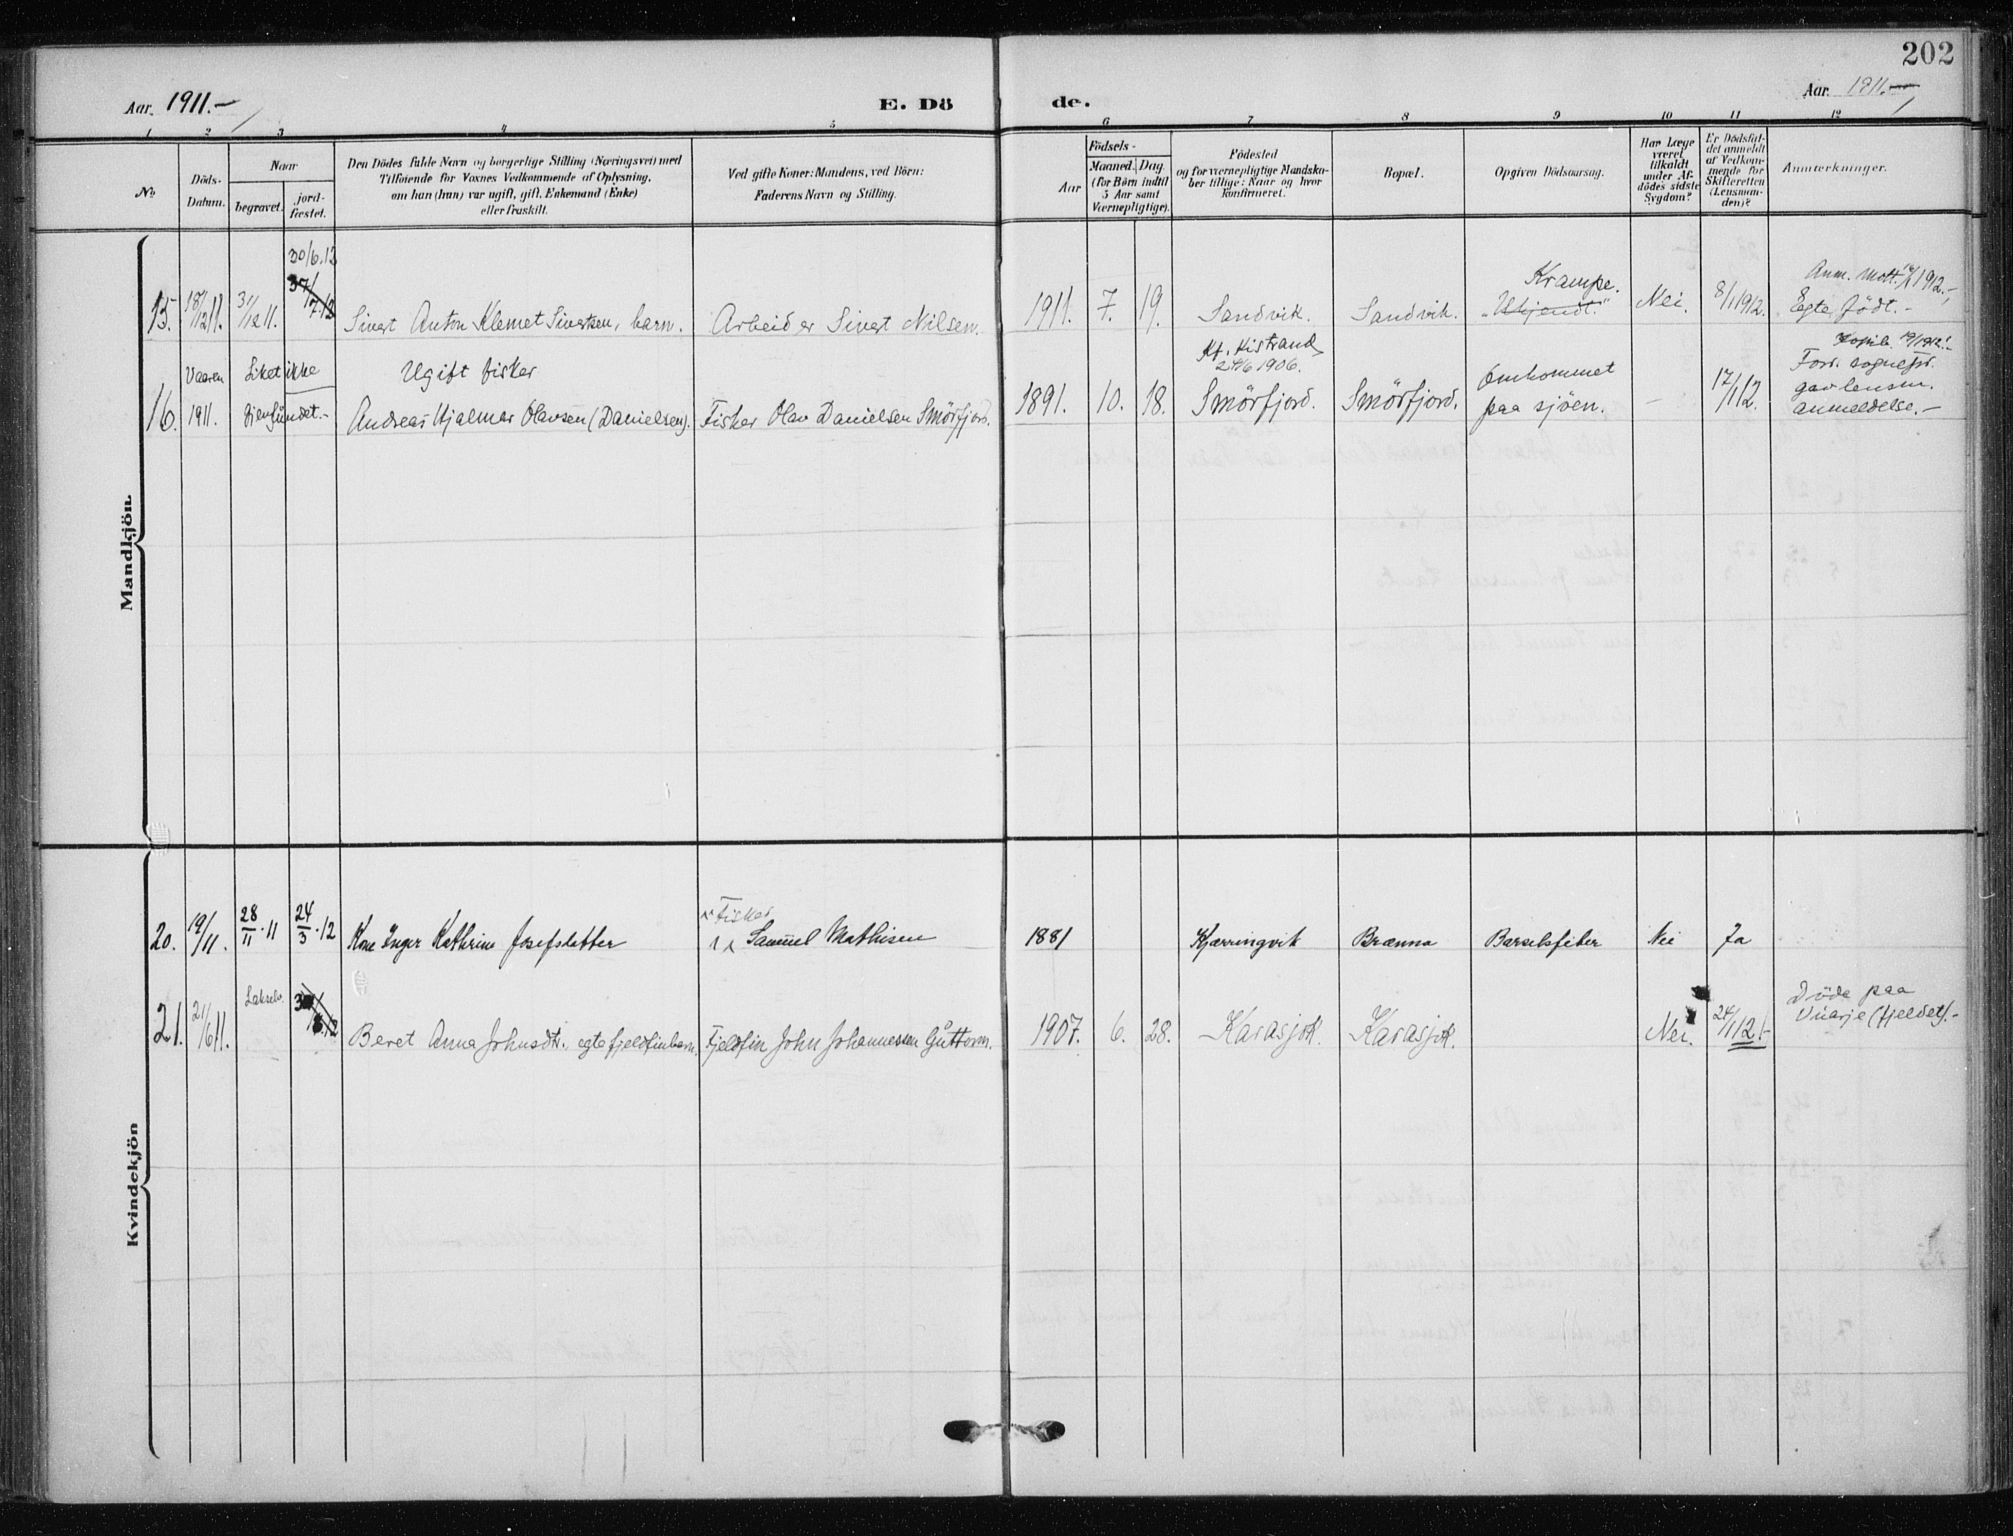 202
Aar. 1911.—
E. Dö
de.
Aar. 1911.
1 2 3 4 5 6 7 8 9 10 11 12
No
Döds-
Datum.
Naar
begravet.
jord-
fæstet.
Den Dödes fulde Navn og borgerlige Stilling (Næringsvei) med
Tilföiende for Voxnes Vedkommende af Oplysning,
om han (hun) var ugift, gift, Enkemand (Enke)
eller fraskilt.
Ved gifte Koner: Mandens, ved Börn:
Faderens Navn og Stilling.
Födsels-
Aar
Maaned.
Dag.
(for Börn indtil
5 Aar samt
Værnepligtige).
Födested
og for værnepligtige Mandska-
ber tillige: Naar og hvor
konfirmeret.
Bopæl.
Opgiven Dödsaarsag.
Har Læge
været
tilkaldt
under Af-
dödes sidste
Sygdom?
Er Dödsfal-
det anmeldt
af Vedkom-
mende for
Skifteretten
(Lensman-
den)?
Anmerkninger.
Mandkjön.
30/6.12
15. 18/12 11. 31/12 11. Sivert Anton Klemet Sivertsen, barn. Arbeider Sivert Nilsen.
1911. 7. 19. Sandvik. Sandvik. Krampe. Nei. 8/1 1912. Anm. Mott. 1912.
Egte født.-
16. Vaaren 1911. Liket ikke gjenfundet.-
Ugift fisker
Andreas Hjalmar Olavsen (Danielsen). Fisker Olav Danielsen Smörfjord.
1891. 10. 18. Kf. Kistrand
24/6 1906.
Smörfjord. Smörfjord. Omkommet
paa sjøen. - 17/1 12.
Forr. sognepr.
gav lensm.
anmeldelse.-
Kvindekjön
20. 19/11. 28/11.11 24/3.12 Kone Inger Kathrine Josefsdatter Fisker
Samuel Mathisen
1881 Kjærringvik Brænna Barselsfeber Nei Ja
21. 21/6 11. Lakselv. Beret Anna Johnsdtr. egte fjeldfinbarn. Fjeldfin John Johannessen Guttorm.
1907. 6. 28. Karasjok. Karasjok. Nei. 24/1 12.- Döde paa
Viarje (fjeldet).-